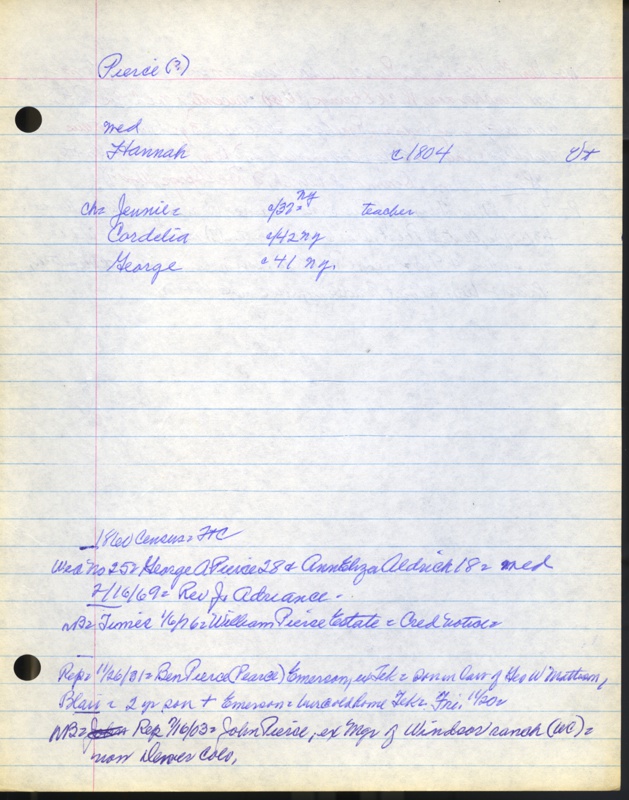 Pierce (?)
med
Hannah c 1804 Vt
Ch= Jennie= c/32= ny teacher
Cordelia c/42 ny
George c 41 ny.
1860 Census= FtC
Wed no 25= George A Pierce 28 & Ann Eliza Aldrich 18= med
2/16/69= Rev J. Adriance.
NB= Times 1/6/76= William Pierce Estate = Cred notice=
Rep= 11/26/01= Ben Pierce (Pearce) Emerson, ex Tek = son in law of Geo W Mattison,
Blair = 2 yr son + Emerson = were old home Tek= Fri, 11/20=
NB= Rep 7/16/03= John Pierce, ex Mgr of Windsor ranch (WC)=
now Denver Colo,